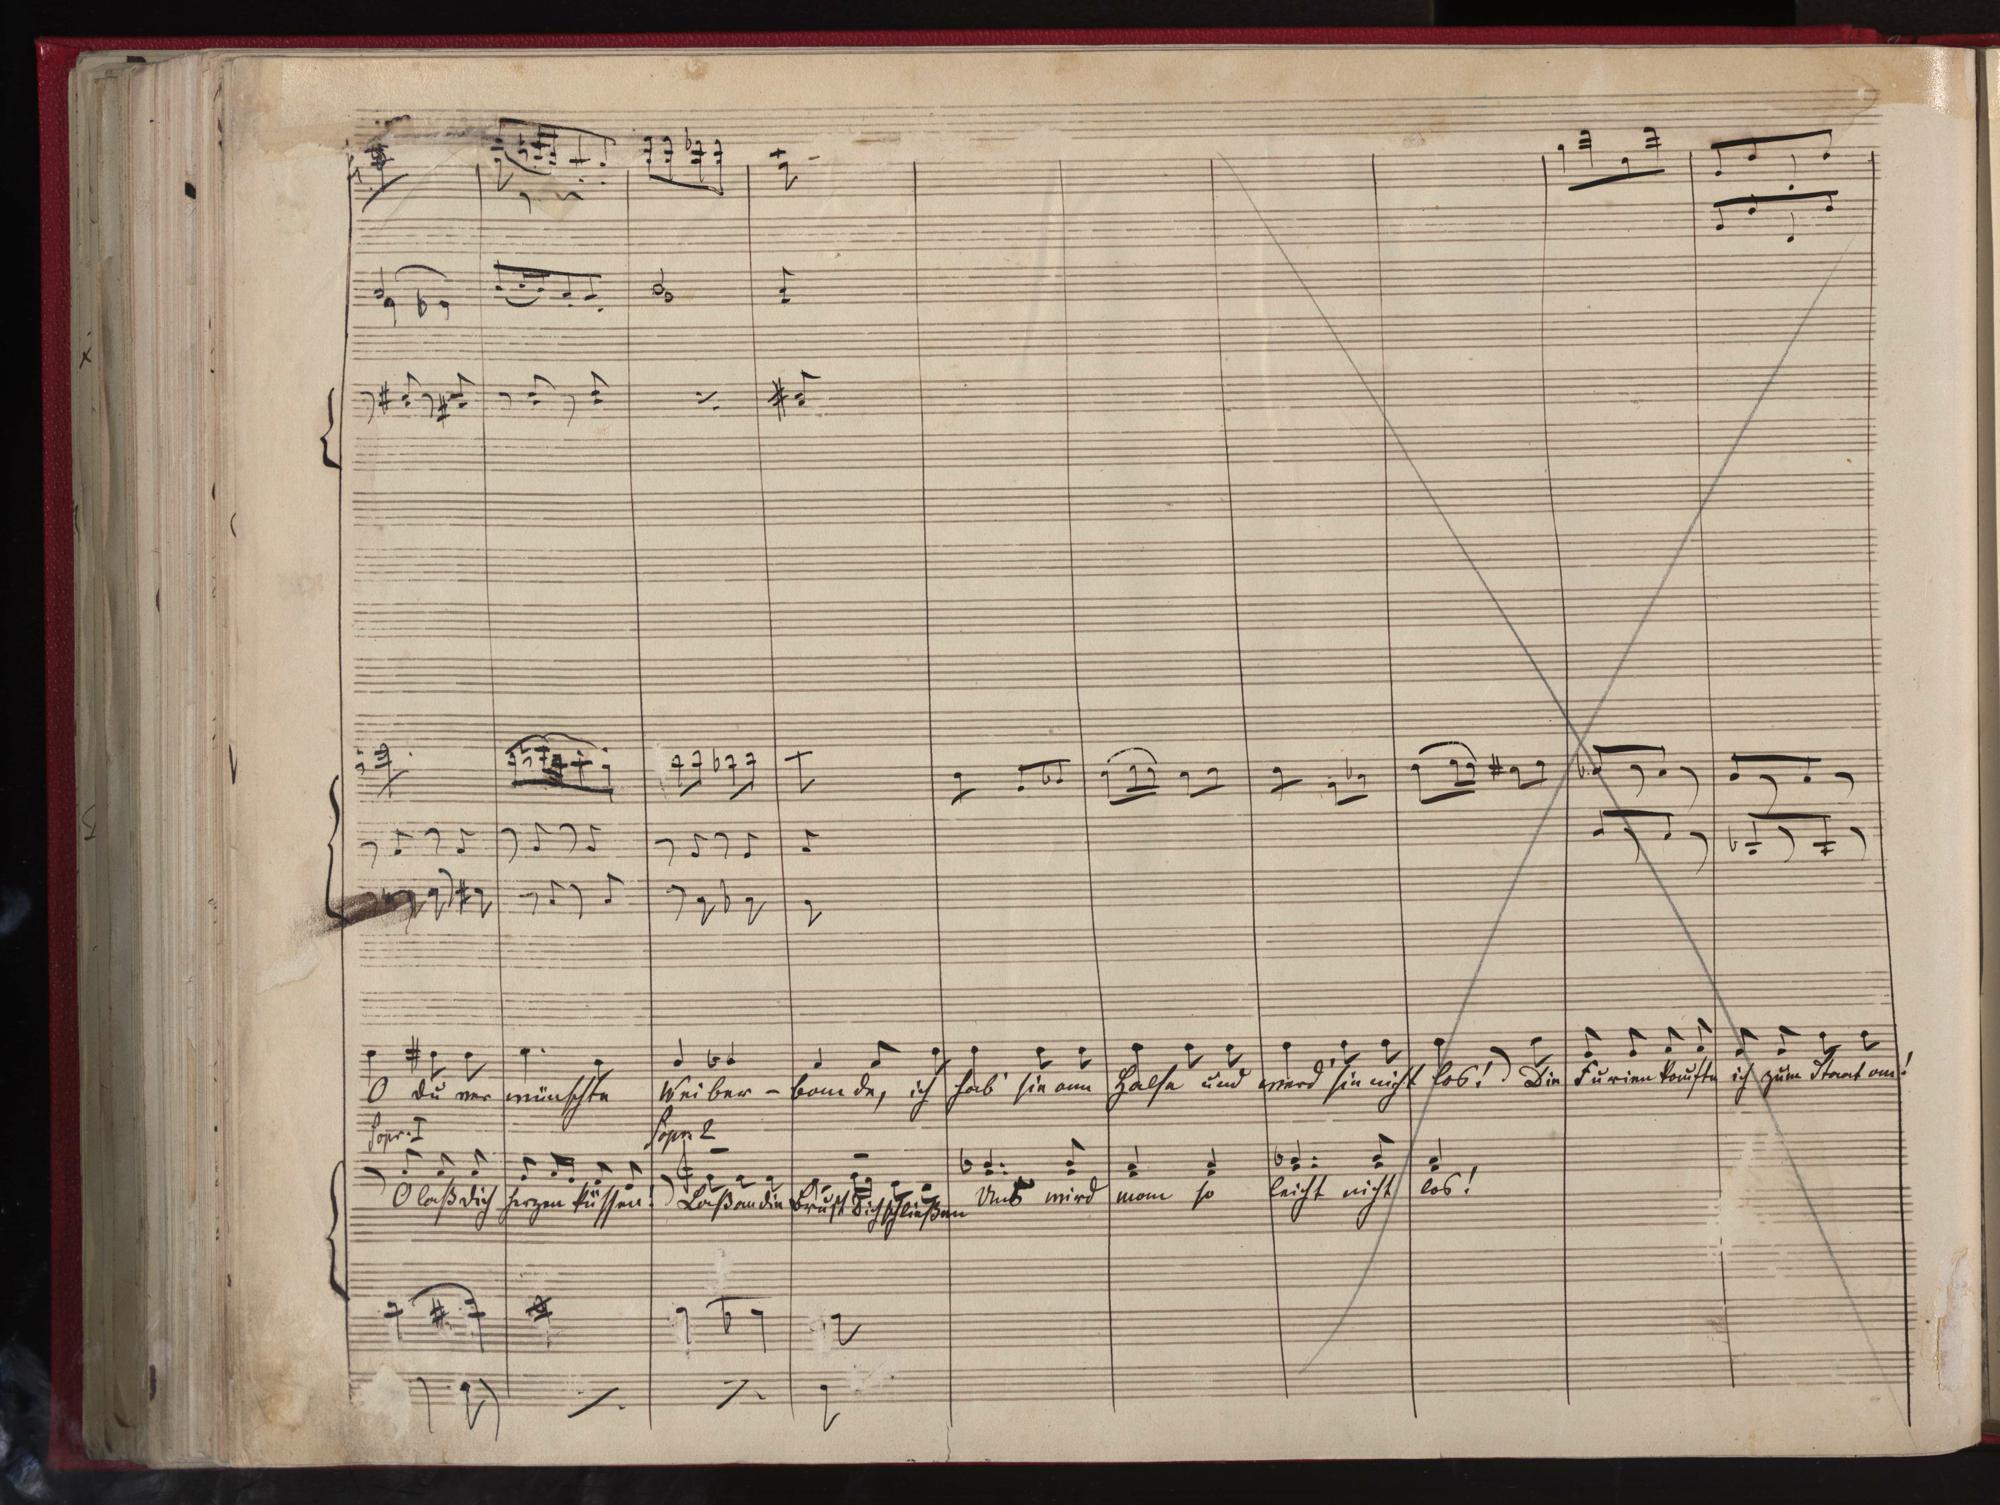 O du ver wünschte Weiber - bande, ich hab' sie am Halse und werd' sie nicht los! Die Furien kaufte ich zum Staat an!
Sopr. I Sopr. 2
O laß dich herzen küssen! Laß an die Brust dich schließen Uns wird man so leicht nicht los!